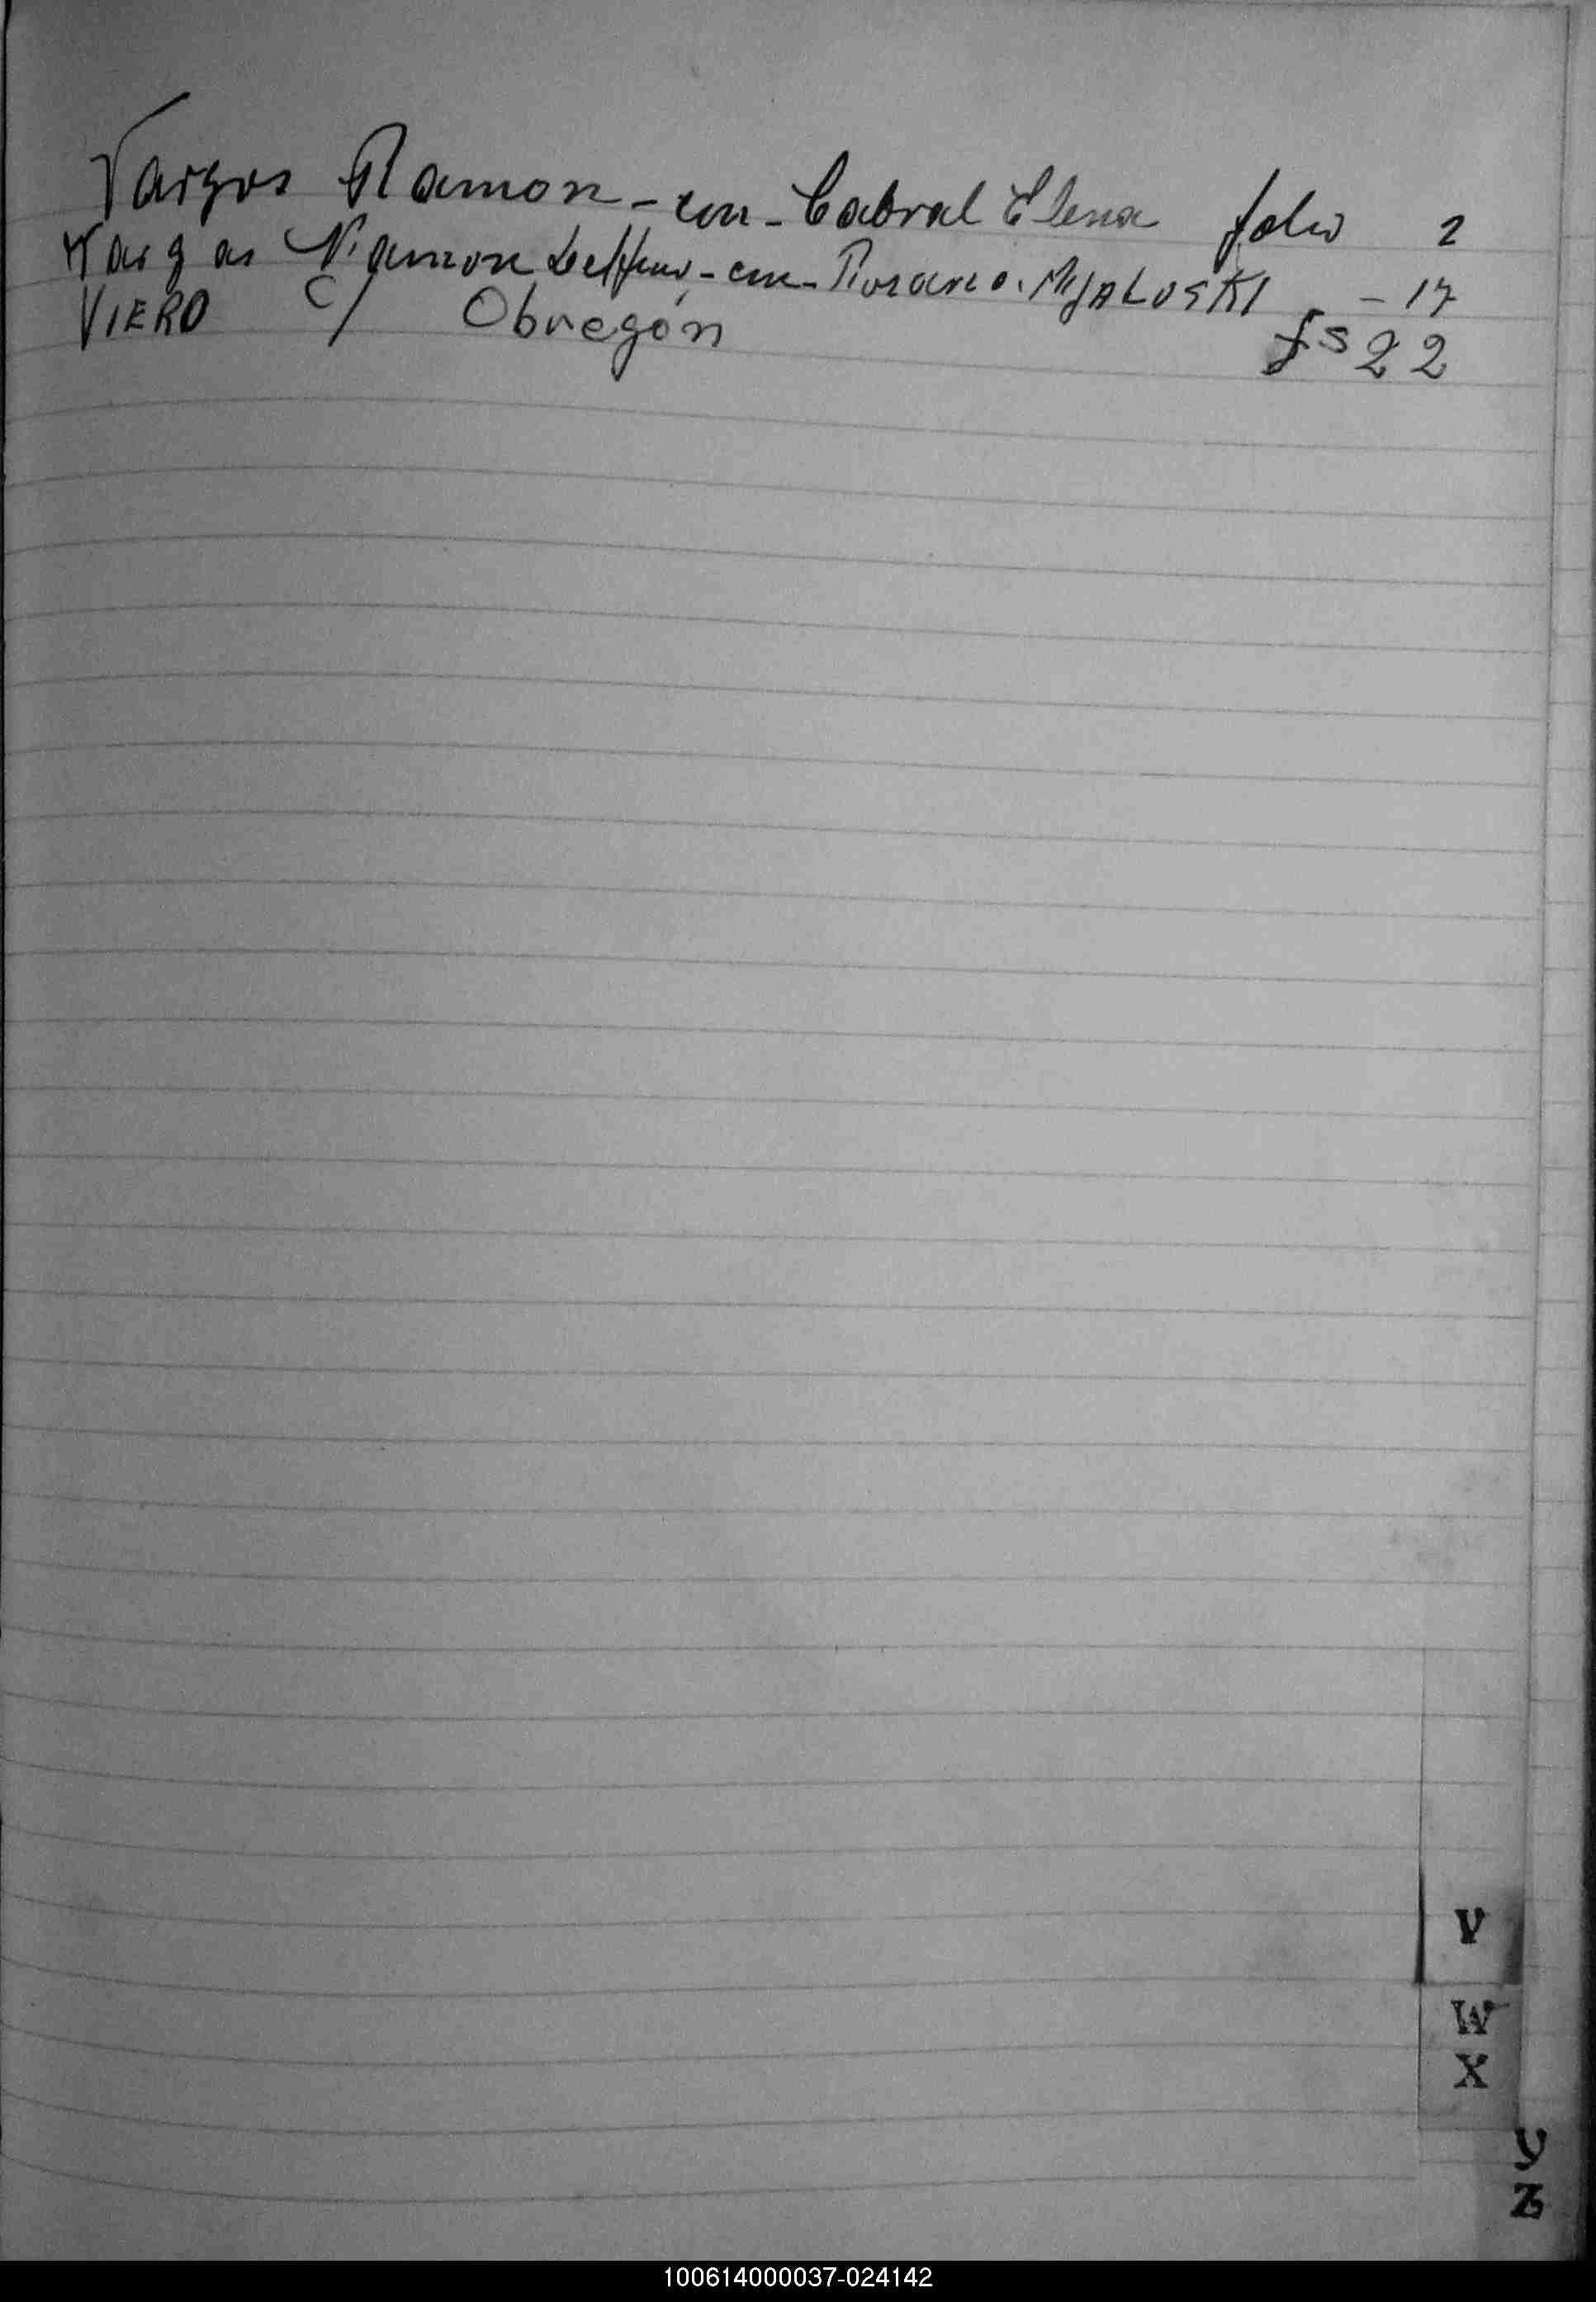 Vargas Ramon - con - Cabral Elena folio 2
Vargas Ramon Delfino - con - Rosario. MIJALUSKI - 17
VIERO C/ Obregón fs 22
V
W
X
Y
Z
100614000037-024142